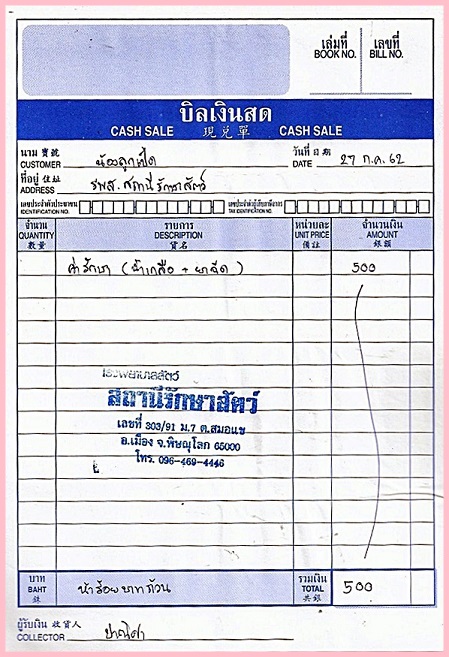 เล่มที่ เลขที่
BOOK NO. BILL NO.
บิลเงินสด
CASH SALE 現兑單 CASH SALE
นาม 寶號 วันที่ 日期
CUSTOMER DATE 27 ก.ค. 62
ที่อยู่ 住址
ADDRESS รพส. สถานีรักษาสัตว์
เลขประจำตัวประชาชน เลขประจำตัวผู้เสียภาษีอากร
IDENTIFICATION NO. TAX IDENTIFICATION NO.
จำนวน รายการ หน่วยละ จำนวนเงิน
QUANTITY DESCRIPTION UNIT PRICE AMOUNT
數量 貨名 備註 銀額
ค่ารักษา (น้ำเกลือ + ยาฉีด) 500
โรงพยาบาลสัตว์
สถานีรักษาสัตว์
เลขที่ 303/91 ม.7 ต.สมอแข
อ.เมือง จ.พิษณุโลก 65000
โทร. 096-469-4446
บาท รวมเงิน
BAHT ห้าร้อยบาทถ้วน TOTAL 500
銖 共銀
ผู้รับเงิน 收貨人
COLLECTOR